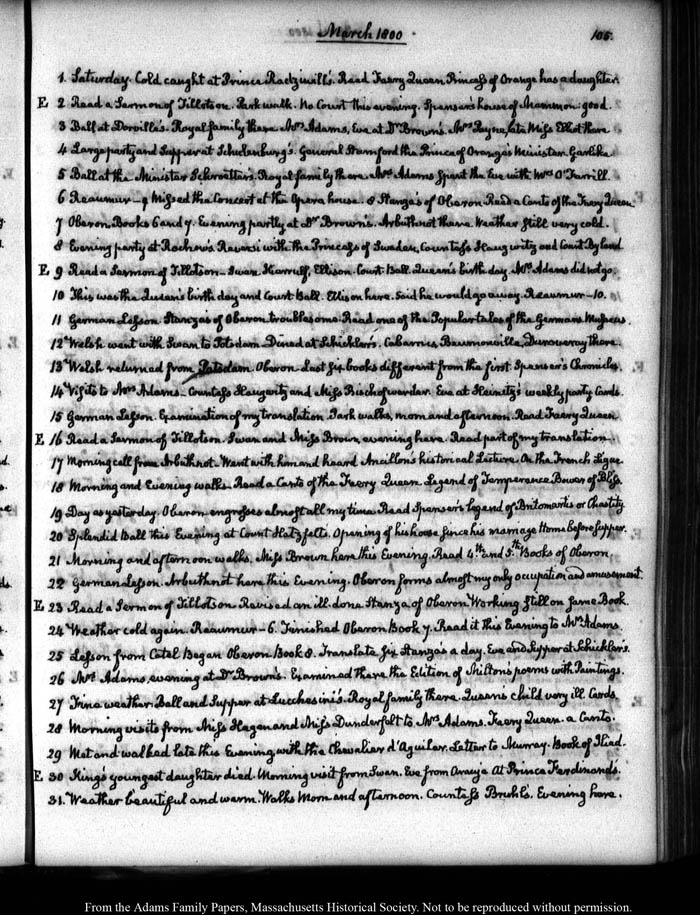 March 1800
105.
1. Saturday. Cold caught at Prince Radziwill's. Read Faery Queen. Princess of Orange has a daughter.
E 2 Read a Sermon of Tillotson. Park walk. No Court this evening. Spenser's house of Mammon: good.
3 Ball at Dorville's. Royal family there. Mrs Adams, Eve at Dr Brown's. Mrs Payne, late Miss there
4 Large party and Supper at Schulenburg's. General Stamford the Prince of Orange's Minister. Garlike
5 Ball at the Minister Schroetter's. Royal family there. Mrs Adams Spent the Eve with Mrs O'Farrill.
6 Reaumur – 9 Missed the Concert at the Opera house. 8 Stanza's of Oberon. Read a Canto of the Faery Queen
7 Oberon. Books 6 and 7. Evening partly at Dr Brown's. Arbuthnot there. Weather still very cold.
8 Evening party at Rochow's. Reversi with the Princess of Sweden, Countess Haugwitz and Count Byland
E 9 Read a Sermon of Tillotson – Swan. Ellison. Court. Ball. Queen's birth day. Mrs Adams did not go.
10 This was the Queen's birth day and Court Ball. Ellison here. Said he would go away. Reaumur – 10.
11 German Lesson. Stanza's of Oberon troublesome. Read one of the Popular tales of the Germans. Museus.
12 Welsh went with Swan to Potsdam – Dined at Schickler's. Cabarrus Beurnonville, there.
13 Welsh returned from Potsdam. Oberon. Last six books different from the first. Spenser's Chronicles.
14 Visits to Mrs Adams. Countess Haugwitz and Miss Bischofwerder. Eve at Heinitz's weekly party. Cards.
15 German Lesson. Examination of my translation. Park walks, morn and afternoon. Read Faery Queen
E 16 Read a Sermon of Tillotson. Swan and Miss Brown, evening here. Read part of my translation.
17 Morning call from Arbuthnot. Went with him and heard Ancillon's historical Lecture. On the French Ligue.
18 Morning and Evening walks. Read a Canto of the Faery Queen. Legend of Temperance Bower of Bliss.
19 Day as yesterday. Oberon engrosses almost all my time. Read Spenser's Legend of Britomartis or Chastity.
20 Splendid Ball this Evening at Count Hatzfelt's. Opening of his house since his marriage. Home before supper.
21 Morning and afternoon walks. Miss Brown here this Evening. Read 4th and 5th Books of Oberon.
22 German Lesson. Arbuthnot here this Evening. Oberon forms almost my only occupation and amusement.
E 23 Read a Sermon of Tillotson. Revised an ill-done Stanza of Oberon. Working still on same Book.
24 Weather cold again. Reaumur – 6. Finished Oberon Book 7. Read it this Evening to Mrs Adams.
25 Lesson from Catel. Began Oberon Book 8. Translate six Stanza's a day. Eve and Supper at Schickler's.
26 Mrs Adams, evening at Dr Brown's. Examined there the Edition of Milton's poems with Paintings.
27 Fine weather. Ball and Supper at Lucchesini's. Royal family there. Queen's child very ill. Cards.
28 Morning visits from Miss Hagen and Miss Dunderfelt to Mrs Adams. Faery Queen. a Canto.
29 Met and walked late this Evening, with the Chevalier d'Aguilar. Letter to Murray. Book of Iliad.
E 30 King's youngest daughter died. Morning visit from Swan. Eve from Araujo. At Prince Ferdinand's.
31. Weather beautiful and warm. Walks Morn and afternoon. Countess Bruhl's. Evening here.
From the Adams Family Papers, Massachusetts Historical Society. Not to be reproduced without permission.